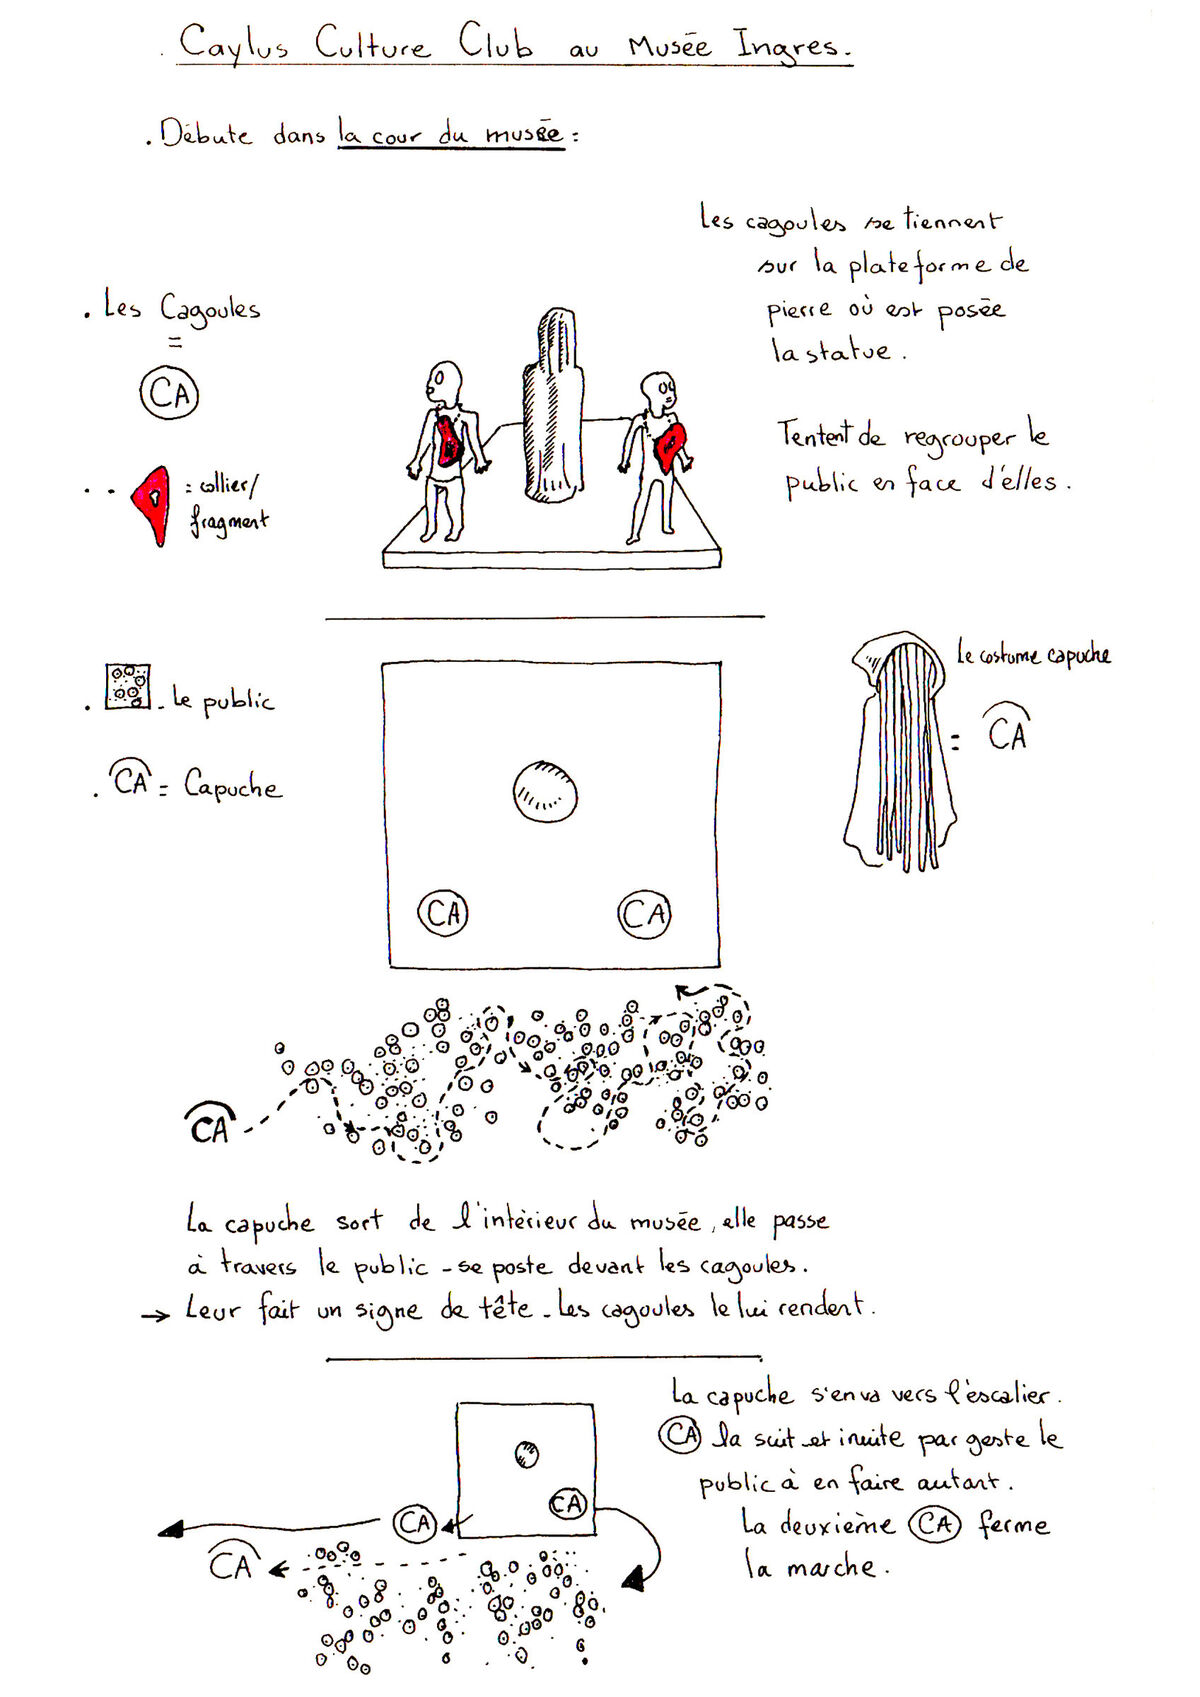 . Caylus Culture Club au Musée Ingres.
. Débute dans la cour du musée :
Les cagoules se tiennent
sur la plateforme de
pierre où est posée
la statue.
Tentent de regrouper le
public en face d'elles.
. Les Cagoules
=
CA
.. = collier/
fragment
. - Le public
. CA = Capuche
Le costume capuche
= CA
CA
CA
CA
La capuche sort de l'intérieur du musée, elle passe
à travers le public - se poste devant les cagoules.
→ Leur fait un signe de tête - Les cagoules le lui rendent.
La capuche s'en va vers l'escalier.
CA la suit et invite par geste le
public à en faire autant.
La deuxième CA ferme
la marche.
CA
CA
CA